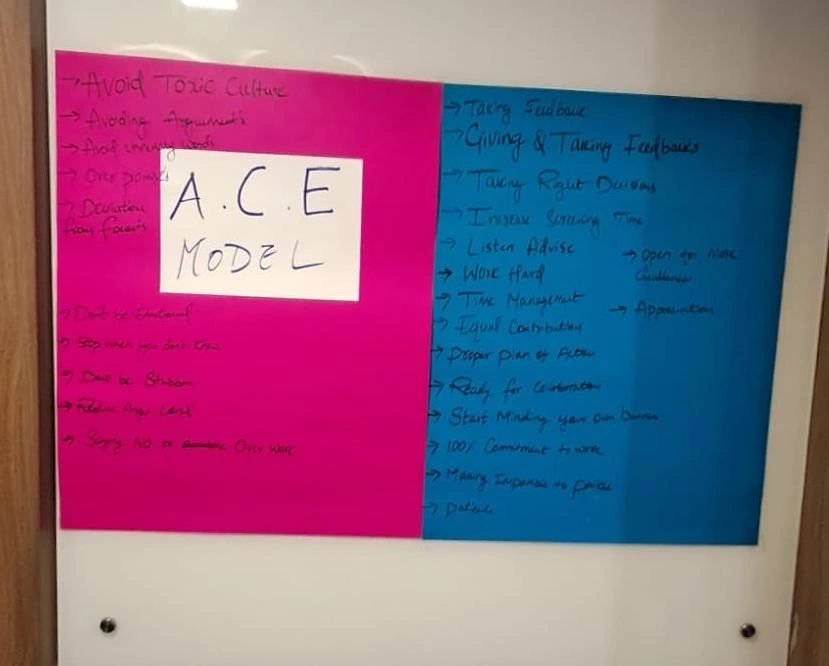 → Avoid Toxic Culture
→ Avoiding Argument's
→ Avoid words
→ Over
→ Deviation
from
A.C.E
MODEL
→ Dont be Emotional
→ Stop when you don't know
→ Dont be Stubborn
→ Reduce Anger Level
→ Saying NO to Over work
→ Taking Feedback
→ Giving & Taking Feedbacks
→ Taking Right Decisions
→ Increase Screening Time
→ Listen Advise
→ Work Hard
→ Time Management
→ Equal Contribution
→ Proper plan of Action
→ Ready for
→ Start Minding your own
→ 100% Commitment to work
→ Making to
→
→ Open for More
Challenges
→ Appreciation